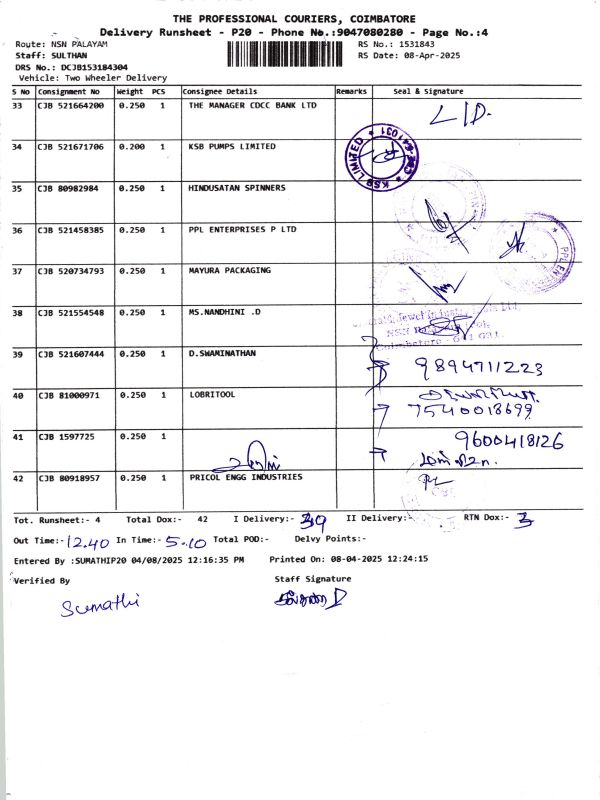 THE PROFESSIONAL COURIERS, COIMBATORE
Delivery Runsheet - P20 - Phone No.:9047080280 - Page No.:4
Route: NSN PALAYAM RS No.: 1531843
Staff: SULTHAN RS Date: 08-Apr-2025
DRS No.: DCJB153184304
Vehicle: Two Wheeler Delivery
S No Consignment No Weight PCS Consignee Details Remarks Seal & Signature
33 CJB 521664200 0.250 1 THE MANAGER CDCC BANK LTD
34 CJB 521671706 0.200 1 KSB PUMPS LIMITED
KSB LIMITED
35 CJB 80982984 0.250 1 HINDUSATAN SPINNERS
36 CJB 521458385 0.250 1 PPL ENTERPRISES P LTD
37 CJB 520734793 0.250 1 MAYURA PACKAGING
38 CJB 521554548 0.250 1 MS.NANDHINI .D
39 CJB 521607444 0.250 1 D.SWAMINATHAN
9894711223
40 CJB 81000971 0.250 1 LOBRITOOL
7540018699
41 CJB 1597725 0.250 1
9600418126
42 CJB 80918957 0.250 1 PRICOL ENGG INDUSTRIES
Tot. Runsheet:- 4 Total Dox:- 42 I Delivery:- 39 II Delivery:- RTN Dox:- 3
Out Time:- 12.40 In Time:- 5.10 Total POD:- Delvy Points:-
Entered By :SUMATHIP20 04/08/2025 12:16:35 PM Printed On: 08-04-2025 12:24:15
Verified By Staff Signature
Sumathi